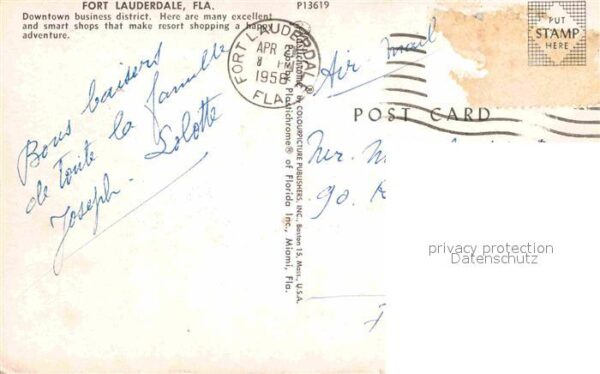 FORT LAUDERDALE, FLA. P13619
Downtown business district. Here are many excellent
and smart shops that make resort shopping a happy
adventure.
Bons baisers
de toute la famille
Joseph - Lolotte
FORT LAUDERDALE
APR
8
1958
FLA.
Plastichrome® by COLOURPICTURE PUBLISHERS, INC., Boston 15, Mass., U.S.A.
Pub. by Plastichrome® of Florida Inc., Miami, Fla.
Air-Mail
PUT
STAMP
HERE
POST CARD
Mr. M
90.
privacy protection
Datenschutz